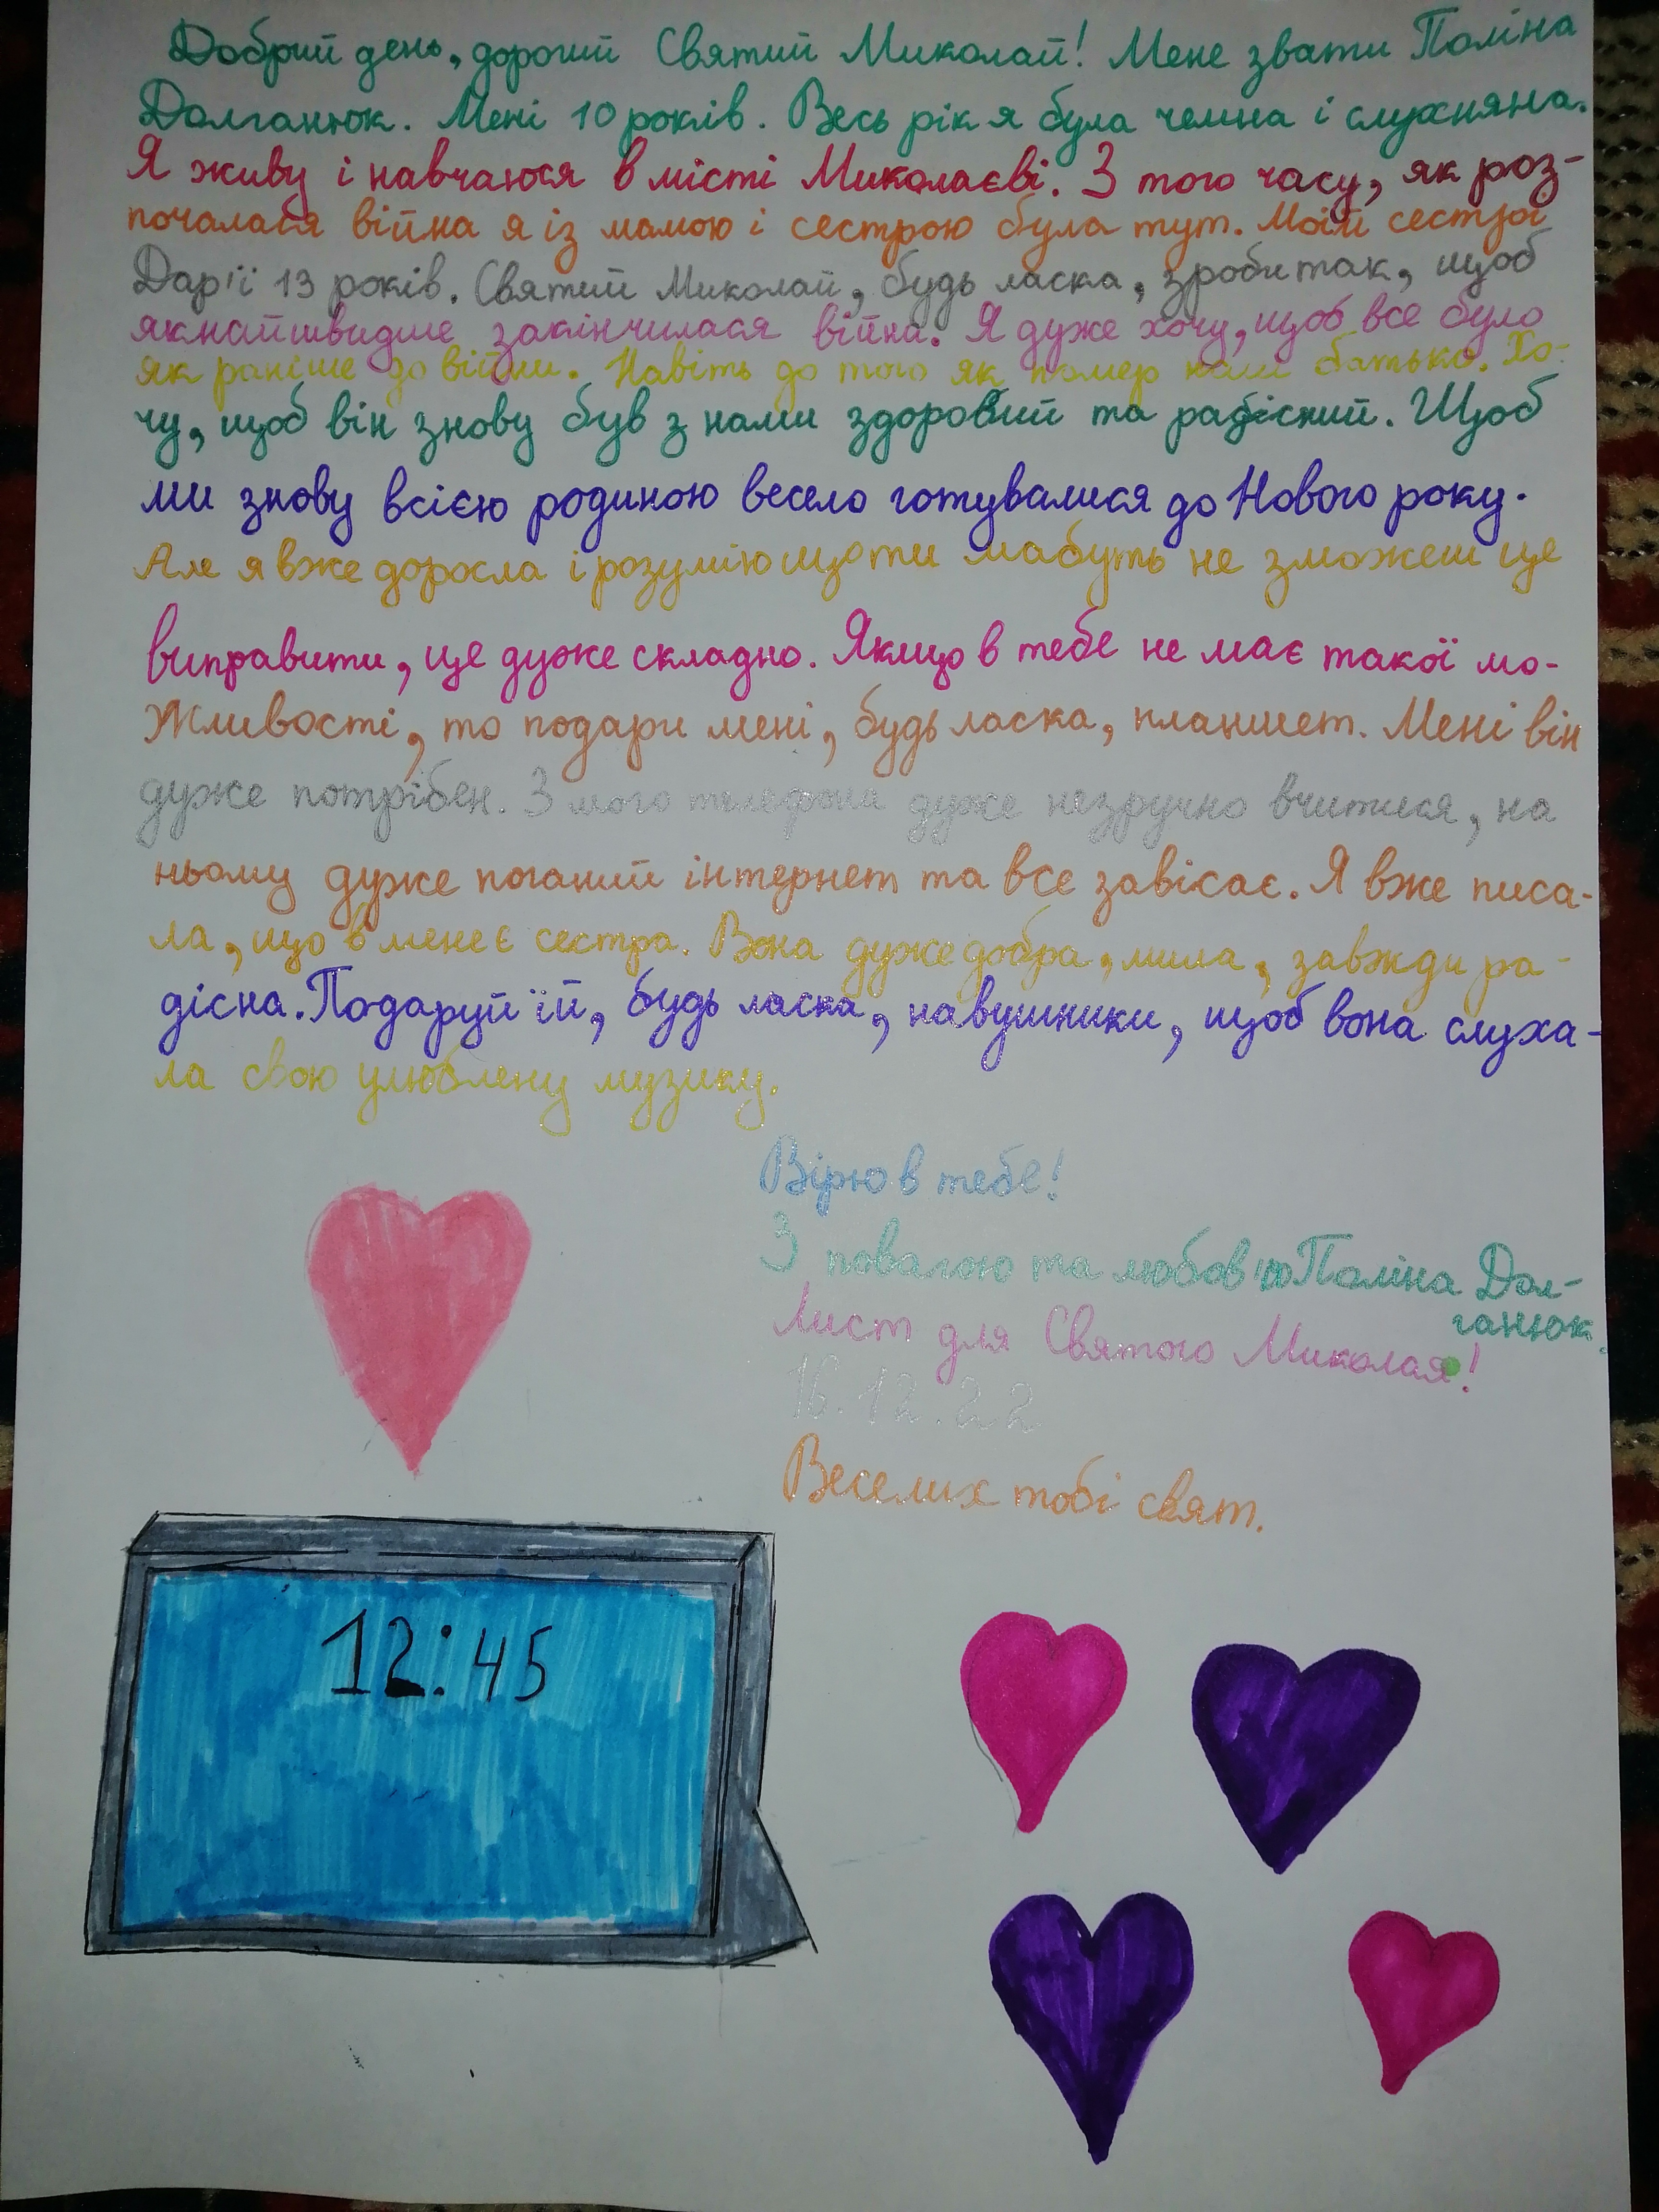 Добрий день, дорогий Святий Миколай! Мене звати Поліна
Долганюк. Мені 10 років. Весь рік я була чемна і слухняна.
Я живу і навчаюся в місті Миколаєві. З того часу, як роз-
почалася війна я із мамою і сестрою була тут. Моїй сестрі
Дар'ї 13 років. Святий Миколай, будь ласка, зроби так, щоб
якнайшвидше закінчилася війна. Я дуже хочу, щоб все було
як раніше до війни. Навіть до того як помер наш батько. Хо-
чу, щоб він знову був з нами здоровий та радісний. Щоб
ми знову всією родиною весело готувалися до Нового року.
Але я вже доросла і розумію що ти мабуть не зможеш це
виправити, це дуже складно. Якщо в тебе не має такої мо-
жливості, то подари мені, будь ласка, планшет. Мені він
дуже потрібен. З мого телефона дуже незручно вчитися, на
ньому дуже поганий інтернет та все завісає. Я вже писа-
ла, що в мене є сестра. Вона дуже добра, мила, завжди ра-
дісна. Подаруй їй, будь ласка, навушники, щоб вона слуха-
ла свою улюблену музику.
Вірю в тебе!
З повагою та любов'ю Поліна Дол-
ганюк.
Лист для Святого Миколая!
16.12.22
Веселих тобі свят.
12:45